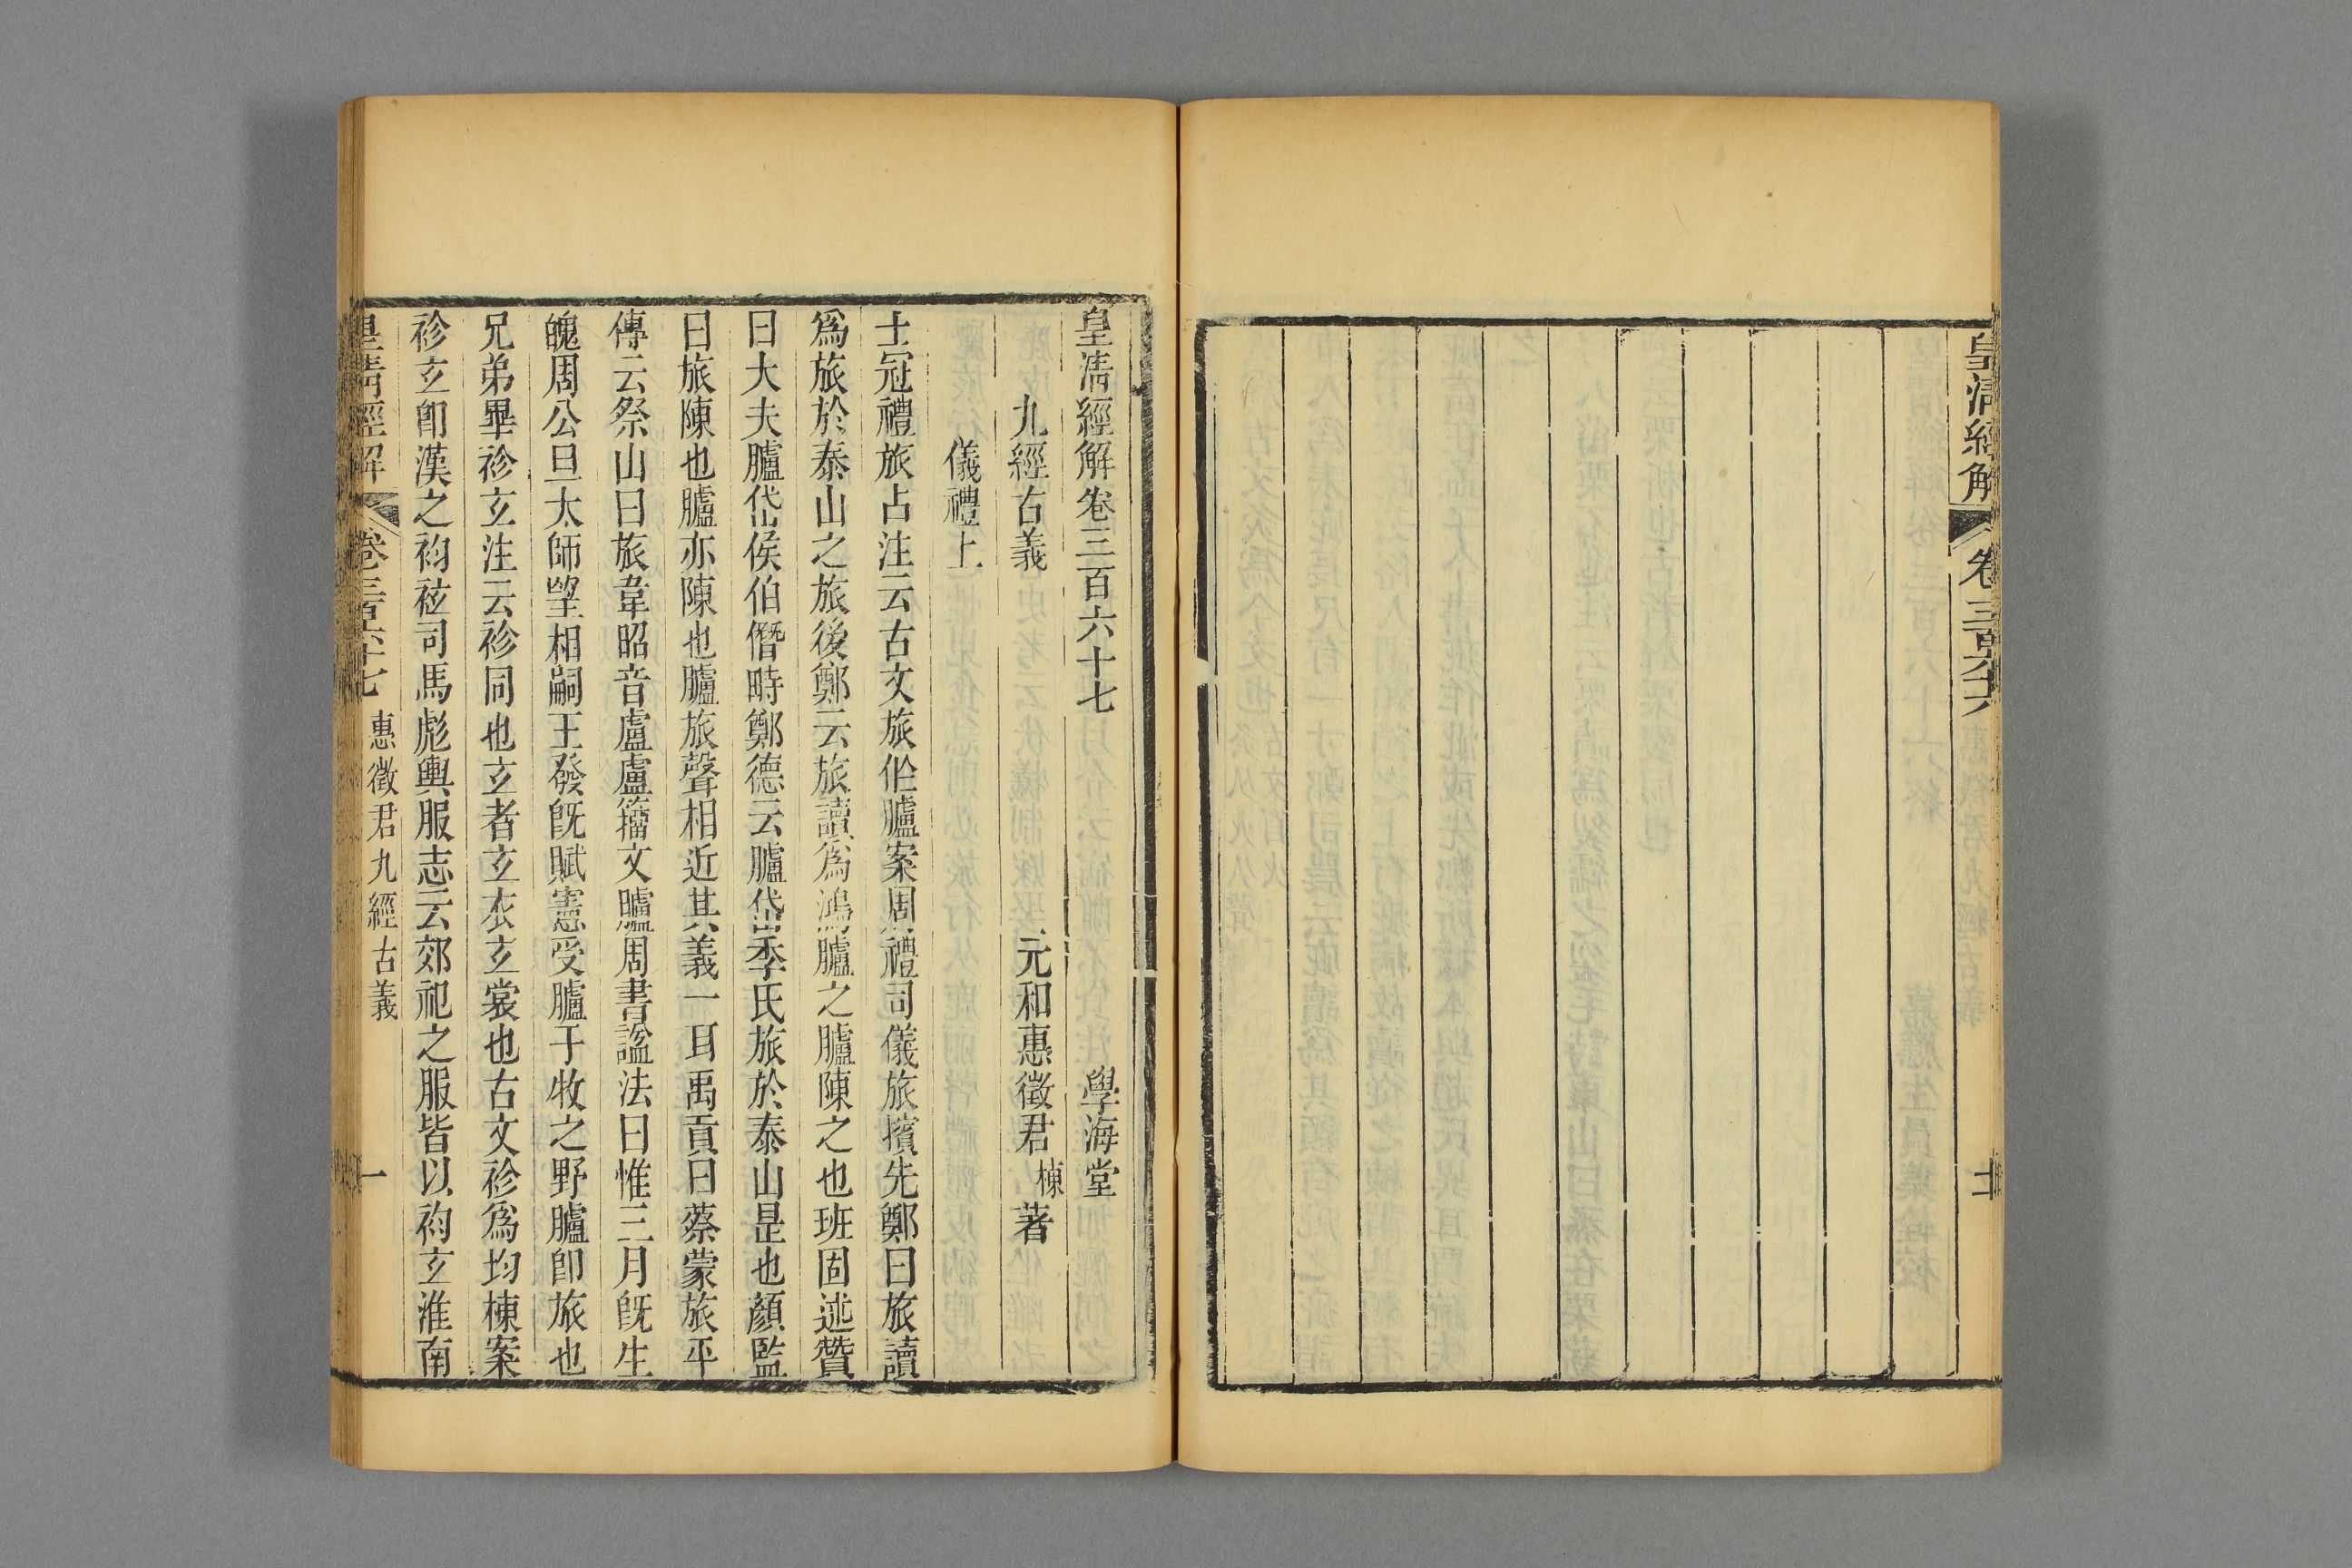 皇清經解
卷三百六十六
十
皇清經解卷三百六十七
學海堂
九經古義
元和惠徵君棟著
儀禮上
士冠禮旅占注云古文旅作臚案周禮司儀旅擯先鄭曰旅讀
爲旅於泰山之旅後鄭云旅讀爲鴻臚之臚陳之也班固述贊
曰大夫臚岱侯伯僭畤鄭德云臚岱季氏旅於泰山是也顏監
曰旅陳也臚亦陳也臚旅聲相近其義一耳禹貢曰蔡蒙旅平
傳云祭山曰旅韋昭音盧盧籒文臚周書諡法曰惟三月旣生
魄周公旦太師望相嗣王發旣賦憲受臚于牧之野臚卽旅也
兄弟畢袗玄注云袗同也玄者玄衣玄裳也古文袗爲均棟案
袗玄卽漢之袀袨司馬彪輿服志云郊祀之服皆以袀玄淮南
皇清經解
卷三百六十七
惠徵君九經古義
一